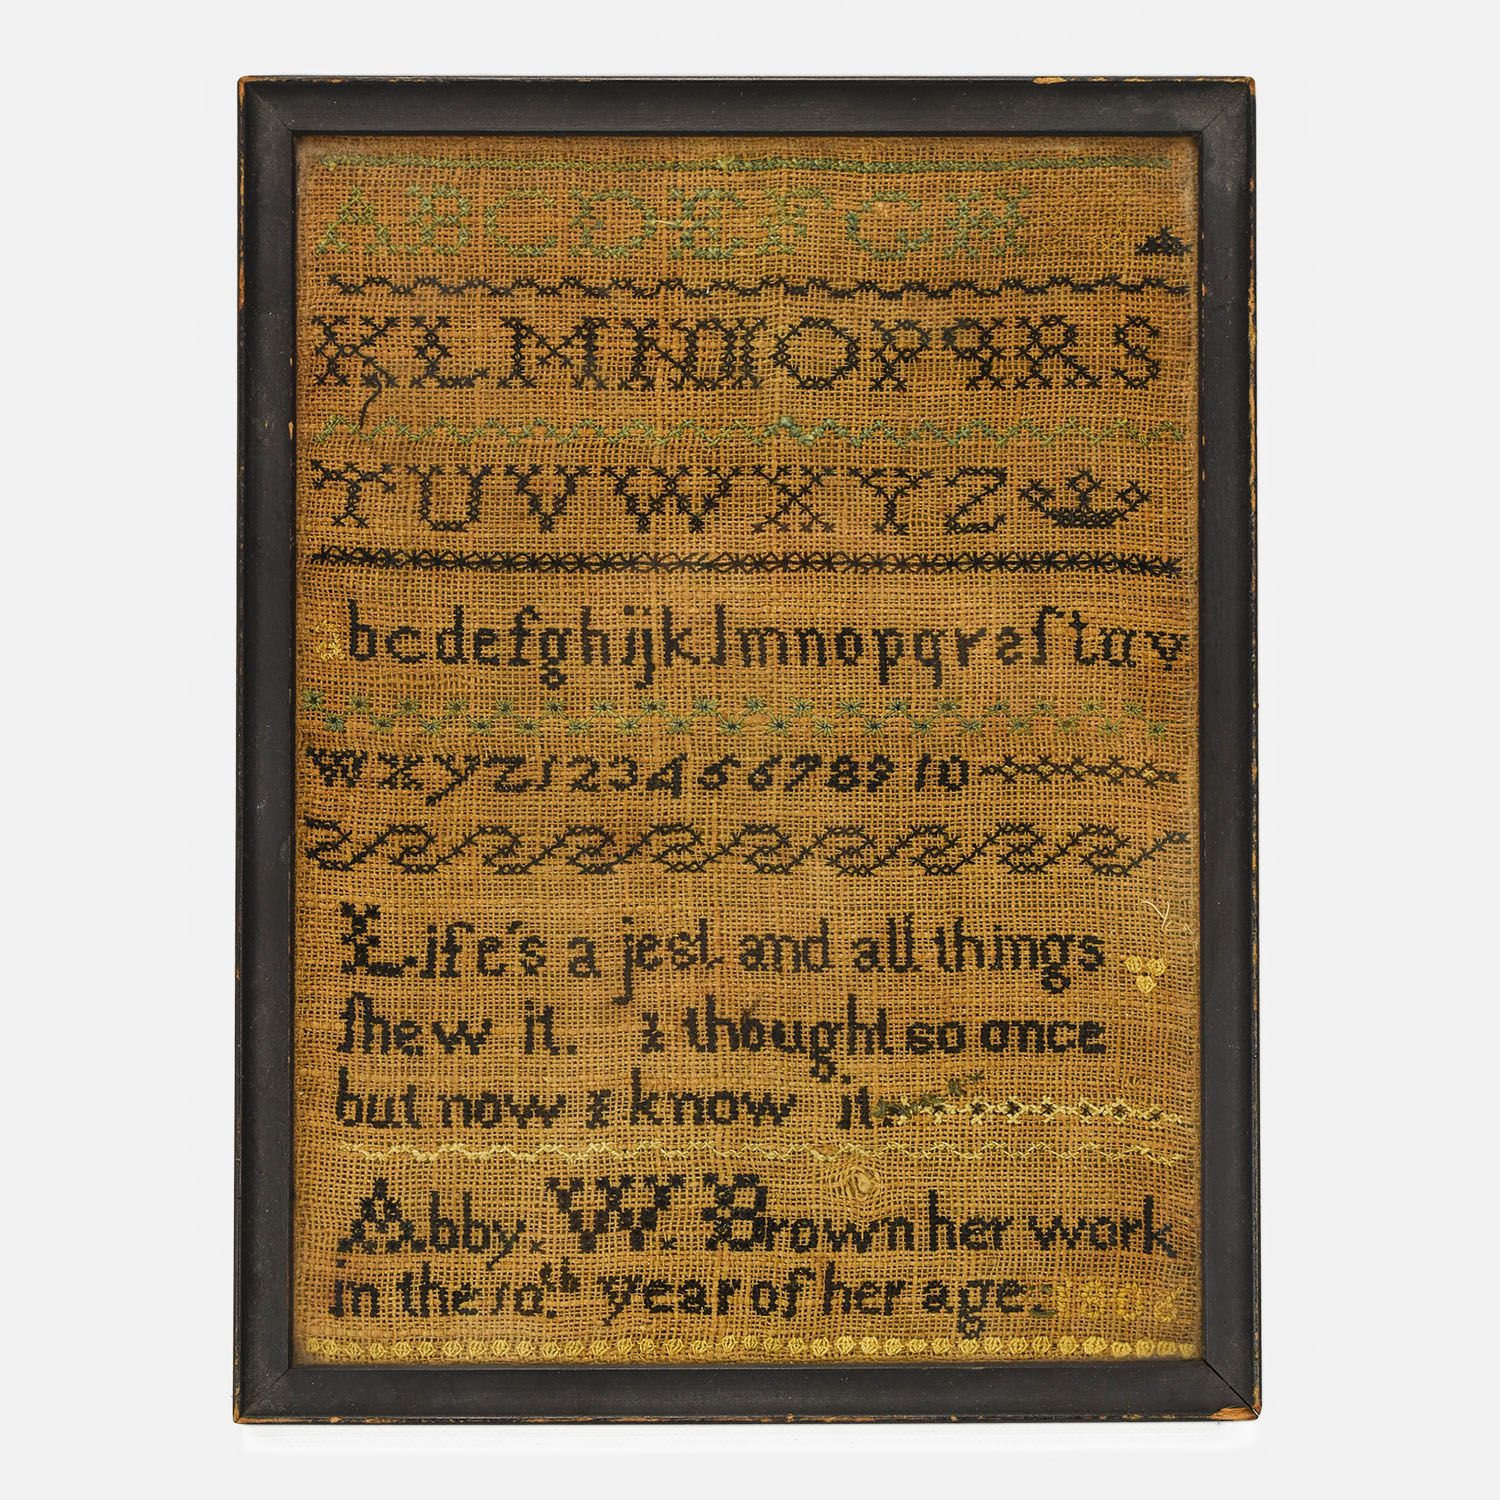 ABCDEFGH
KLMNOPQRS
TUVWXYZ
abcdefghijklmnopqrsſtuv
wxyz12345678910
Life's a jest and all things
ſhew it. I thought so once
but now I know it.
Abby. W. Brown her work
in the 10.th year of her age. 1806